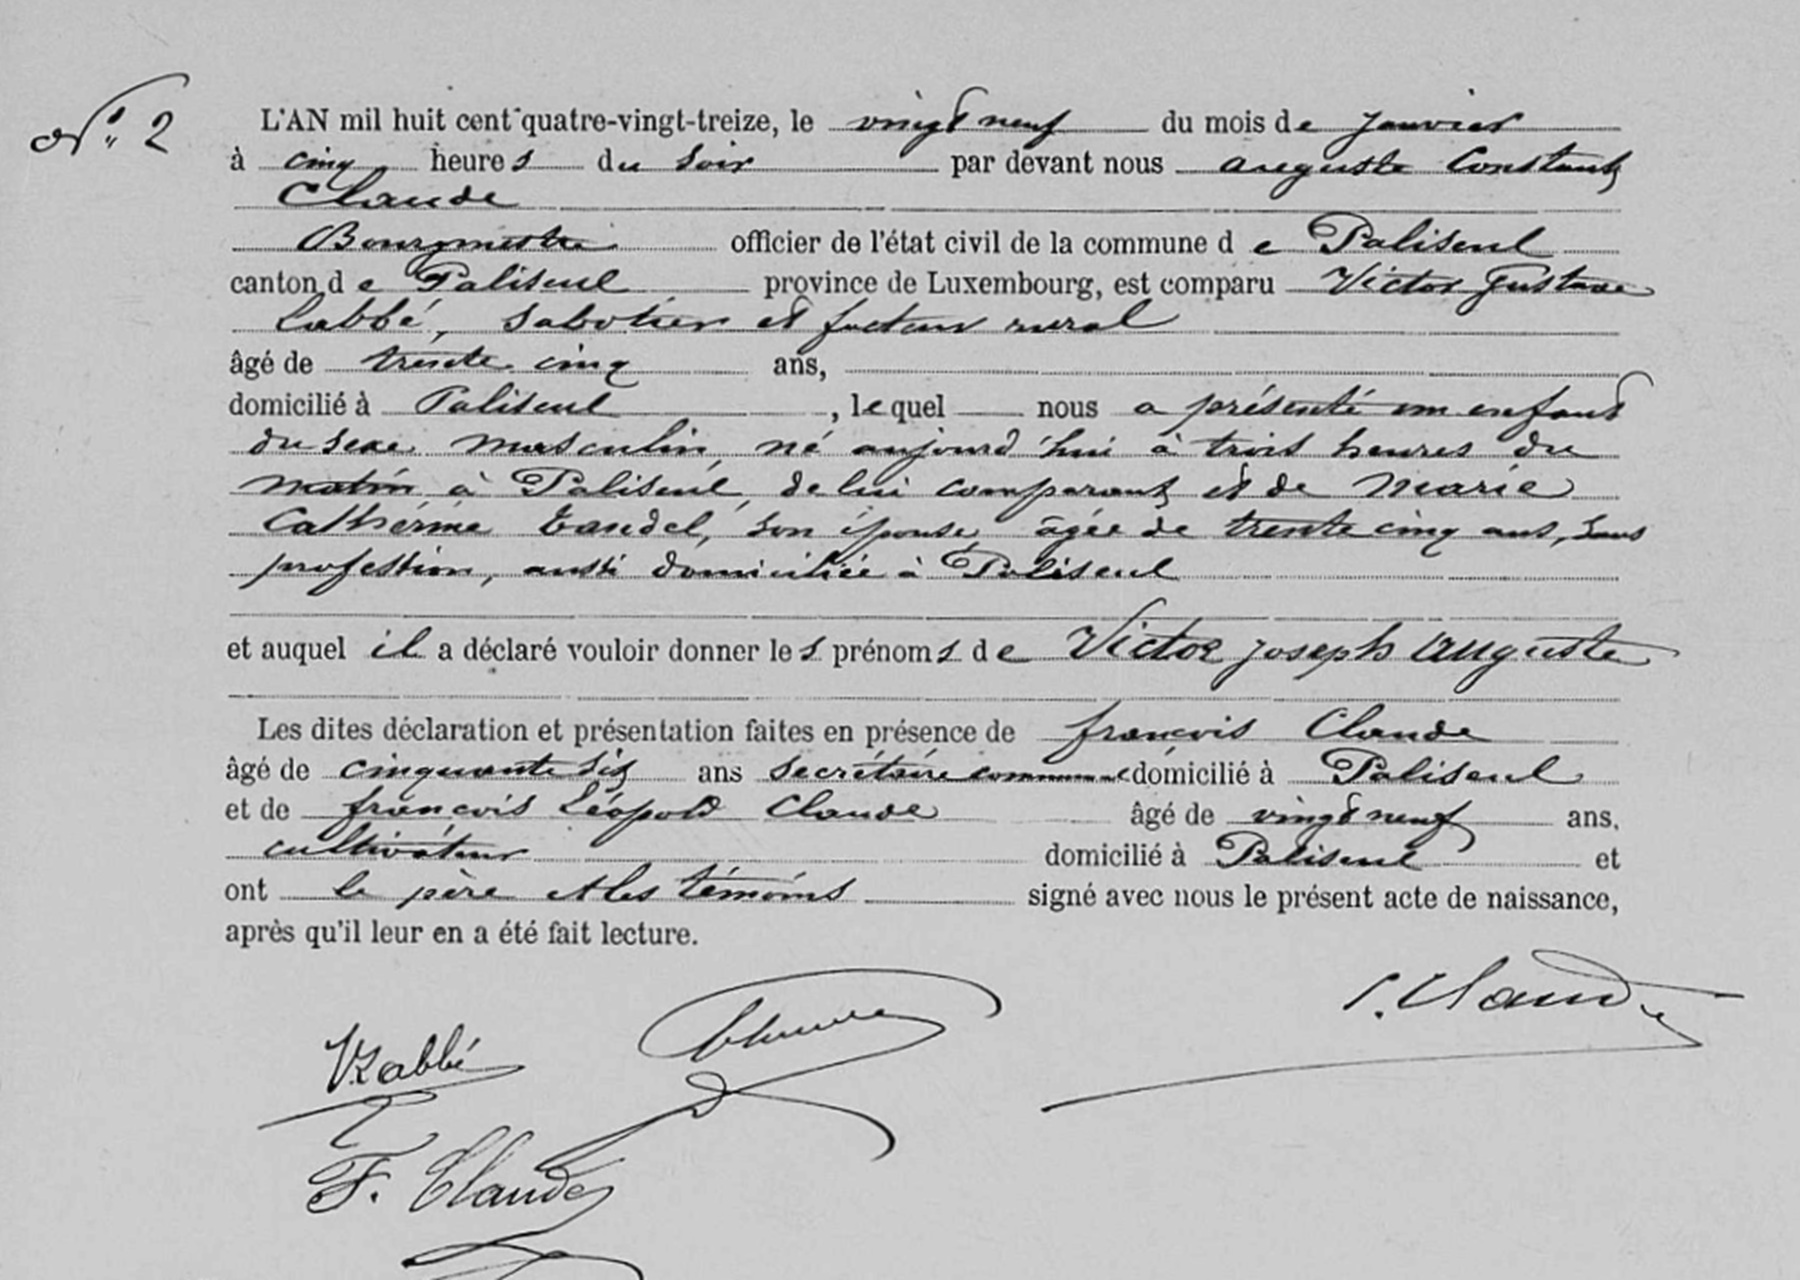 N° 2
L'AN mil huit cent quatre-vingt-treize, le vingt neuf du mois de janvier
à cinq heures du soir par devant nous auguste Constant
Claude
Bourgmestre officier de l'état civil de la commune de Paliseul
canton de Paliseul province de Luxembourg, est comparu Victor Gustave
Labbé, sabotier et facteur rural
âgé de trente cinq ans,
domicilié à Paliseul, lequel nous a présenté un enfant
du sexe masculin, né aujourd'hui à trois heures du
matin à Paliseul, de lui comparant et de Marie
Cathérine Tandel, son épouse, âgée de trente cinq ans, sans
profession, aussi domiciliée à Paliseul
et auquel il a déclaré vouloir donner les prénoms de Victor Joseph Auguste
Les dites déclaration et présentation faites en présence de françois Claude
âgé de cinquante six ans secrétaire communal domicilié à Paliseul
et de françois Léopold Claude âgé de vingt neuf ans,
cultivateur domicilié à Paliseul et
ont le père et les témoins signé avec nous le présent acte de naissance,
après qu'il leur en a été fait lecture.
Claude
V. Labbé
F. Claude